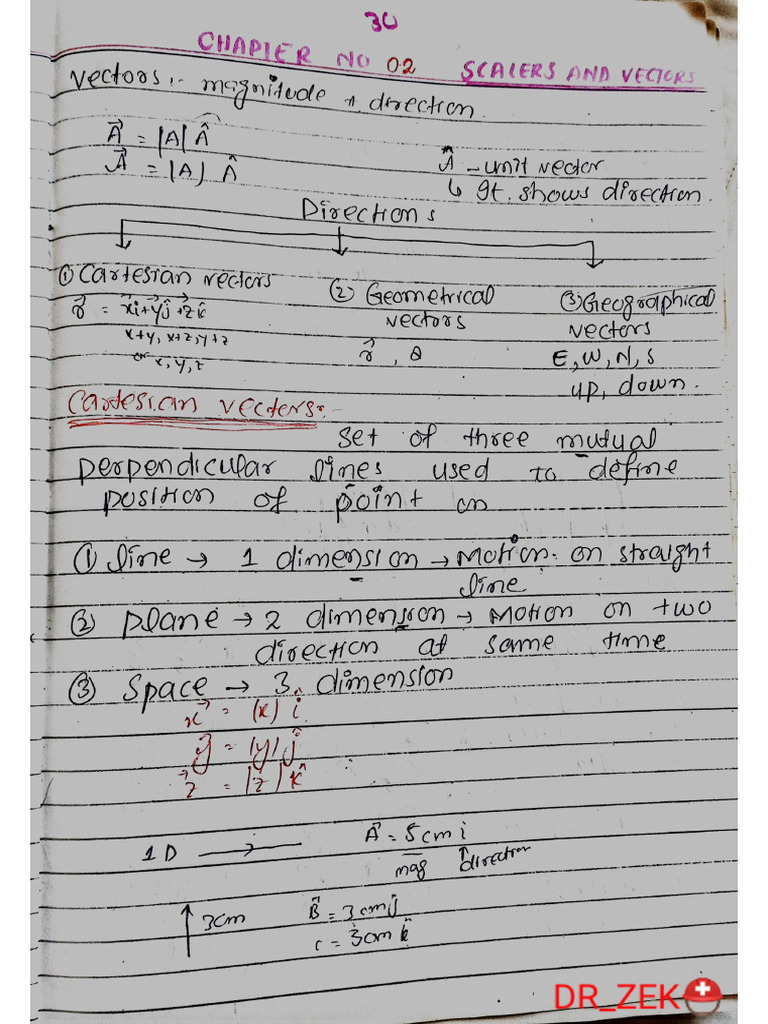 30
CHAPTER NO 02 SCALERS AND VECTORS
Vectors:- magnitude + direction.
A⃗ = |A| Â
A⃗ = |A| Â
Â - unit vector
↳ It shows direction.
Directions
① Cartesian vectors
r⃗ = x⃗i+y⃗ĵ+z⃗k̂
x+y, x+z, y+z
or x, y, z
② Geometrical
vectors
r⃗, θ
③ Geographical
vectors
E, W, N, S
up, down.
Cartesian vectors:-
Set of three mutual
perpendicular lines used to define
position of point on
① line → 1 dimension → Motion on straight
line
② plane → 2 dimension → Motion on two
direction at same time
③ Space → 3 dimension
x⃗ = (x) î
y⃗ = |y| ĵ
z⃗ = |z| k̂
1D → A⃗ = 5cm i
mag direction
↑ 3cm B⃗ = 3cm ĵ
c = 3cm k̂
DR_ZEK⛑